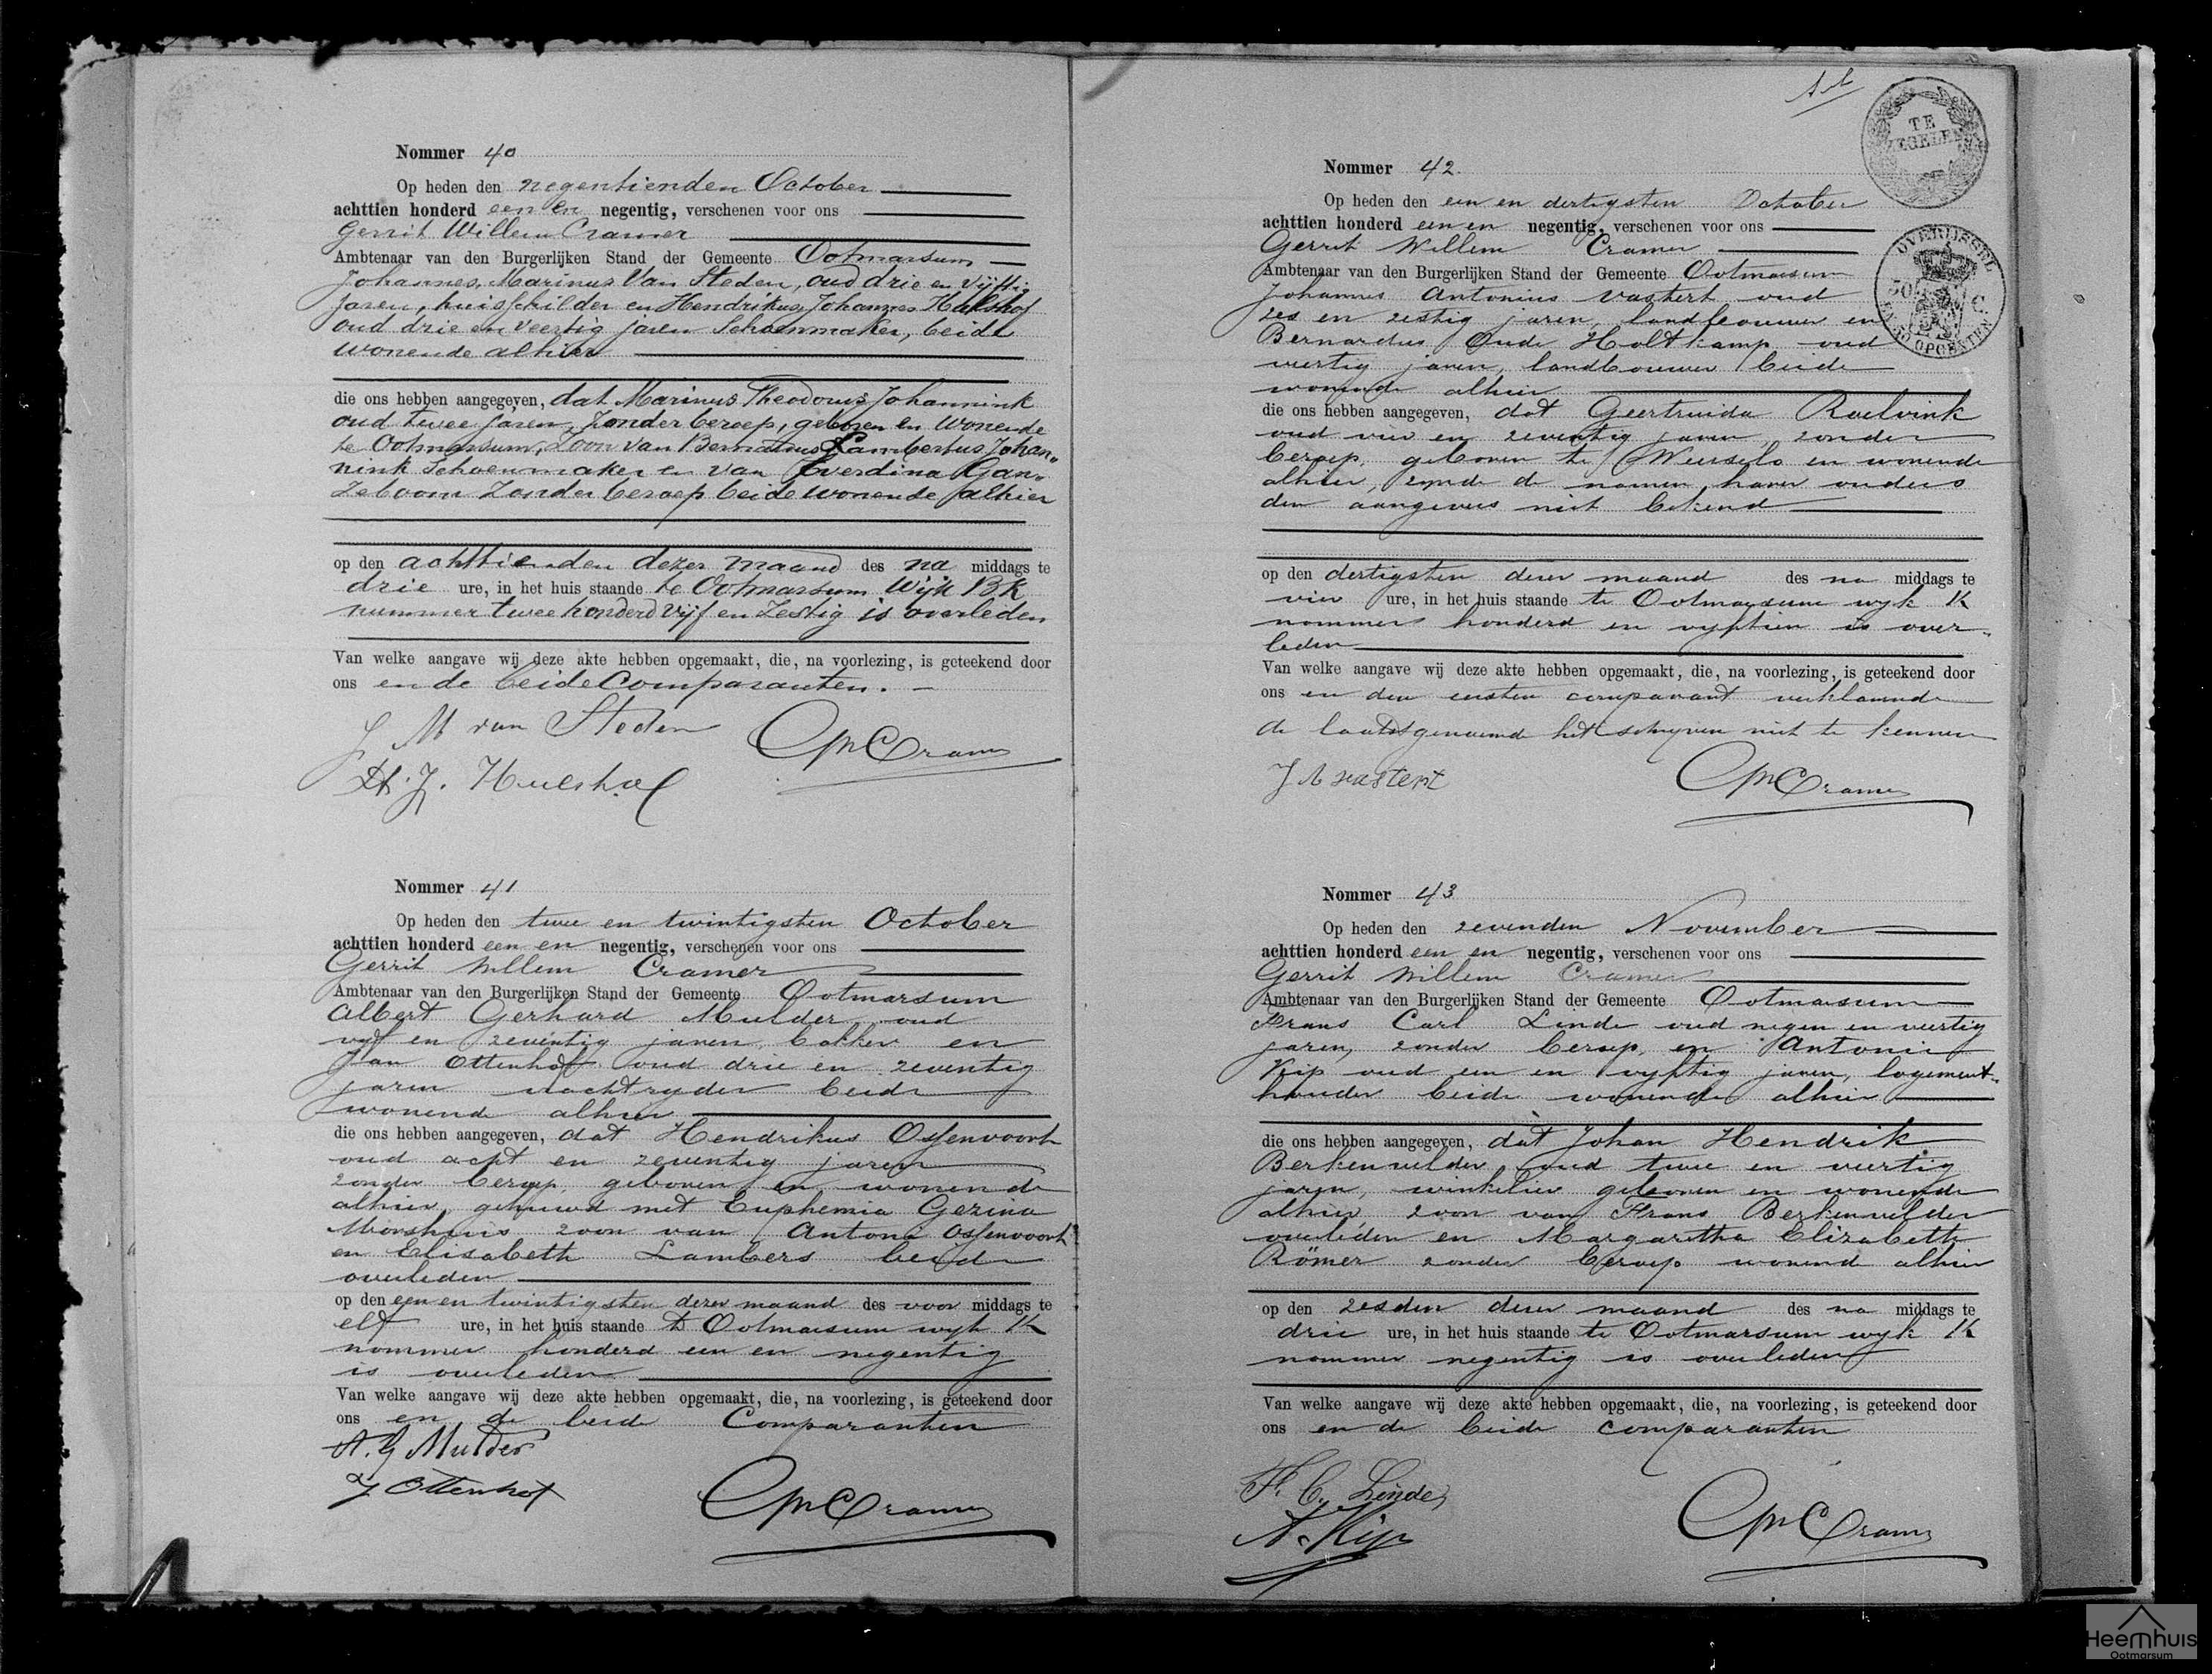 Nommer 40
Op heden den negentienden October
achttien honderd een en negentig, verschenen voor ons
Gerrit Willem Cramer
Ambtenaar van den Burgerlijken Stand der Gemeente Ootmarsum
Johannes, Marinus Van Steden, oud drie en vijftig
jaren, huisschilder en Hendrikus, Johannes Hulshof
oud drie en veertig jaren Schoenmaker, beide
wonende alhier
die ons hebben aangegeven, dat Marinus Theodorus Johannink
oud twee jaren, zonder beroep, geboren en wonende
te Ootmarsum, Zoon van Bernardus Lambertus Johan„
nink Schoenmaker en van Everdina Gan„
zeboom zonder beroep beide wonende alhier
op den achttienden dezer maand des na middags te
drie ure, in het huis staande te Ootmarsum Wijk BK
nummer twee honderd vijf en Zestig is overleden
Van welke aangave wij deze akte hebben opgemaakt, die, na voorlezing, is geteekend door
ons en de beide Comparanten.
J M van Steden GWCramer
H. J. Hulshof
Nommer 41
Op heden den twee en twintigsten October
achttien honderd een en negentig, verschenen voor ons
Gerrit Willem Cramer
Ambtenaar van den Burgerlijken Stand der Gemeente Ootmarsum
Albert Gerhard Mulder oud
vyf en zeventig jaren, bakker en
Jan Ottenhof oud drie en zeventig
jaren nachtryder beide
wonende alhier
die ons hebben aangegeven, dat Hendrikus Ossenvoort
oud acht en zeventig jaren
zonder beroep, geboren en wonende
alhier, gehuwd met Euphemia Gezina
Morshuis zoon van Antoni Ossenvoort
en Elisabeth Lambers beide
overleden
op den een en twintigsten dezer maand des voor middags te
elf ure, in het huis staande te Ootmarsum wyk K
nommer honderd een en negentig
is overleden
Van welke aangave wij deze akte hebben opgemaakt, die, na voorlezing, is geteekend door
ons en de beide Comparanten
A. G Mulder
J. Ottenhof GWCramer
TE
ZEGELEN
OVERIJSSEL
50 C
EN 30 OPCENTEN
Nommer 42.
Op heden den een en dertigsten October
achttien honderd een en negentig, verschenen voor ons
Gerrit Willem Cramer
Ambtenaar van den Burgerlijken Stand der Gemeente Ootmarsum
Johannes Antonius Vastert oud
zes en zestig jaren, landbouwer en
Bernardus Oude Holtkamp oud
veertig jaren, landbouwer beide
wonende alhier
die ons hebben aangegeven, dat Geertruida Roelvink
oud vier en zeventig jaren, zonder
beroep, geboren te Weerselo en wonende
alhier, zynde de namen harer ouders
den aangevers niet bekend
op den dertigsten dezer maand des na middags te
vier ure, in het huis staande te Ootmarsum wyk K
nommer honderd en vyftien is over„
leden
Van welke aangave wij deze akte hebben opgemaakt, die, na voorlezing, is geteekend door
ons en den eersten comparant verklarende
de laatstgenoemde het schryven niet te kennen
J A vastert GWCramer
Nommer 43
Op heden den zevenden November
achttien honderd een en negentig, verschenen voor ons
Gerrit Willem Cramer
Ambtenaar van den Burgerlijken Stand der Gemeente Ootmarsum
Frans Carl Linde oud negen en veertig
jaren, zonder beroep, en Antonie
Kip oud een en vyftig jaren, logement„
houder beide wonende alhier
die ons hebben aangegeven, dat Johan Hendrik
Berkenvelder oud twee en veertig
jaren, winkelier geboren en wonende
alhier, zoon van Frans Berkenvelder
overleden en Margaretha Elizabeth
Römer zonder beroep wonende alhier
op den zesden dezer maand des na middags te
drie ure, in het huis staande te Ootmarsum wyk K
nommer negentig is overleden
Van welke aangave wij deze akte hebben opgemaakt, die, na voorlezing, is geteekend door
ons en de beide comparanten
F. C. Linde
A. Kip GWCramer
Heemhuis
Ootmarsum